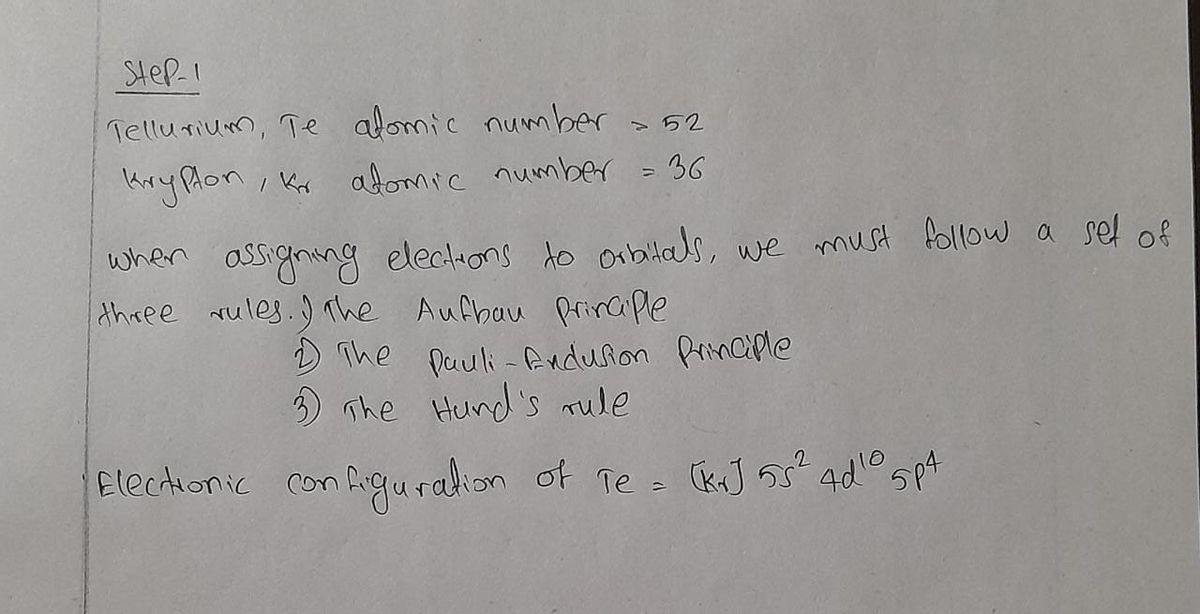 Step-1
Tellurium, Te atomic number = 52
Krypton, Kr atomic number = 36
when assigning electrons to orbitals, we must follow a set of
three rules. 1) The Aufbau principle
2) The Pauli-Exclusion Principle
3) The Hund's rule
Electronic configuration of Te = [Kr] 5s² 4d¹⁰ 5p⁴